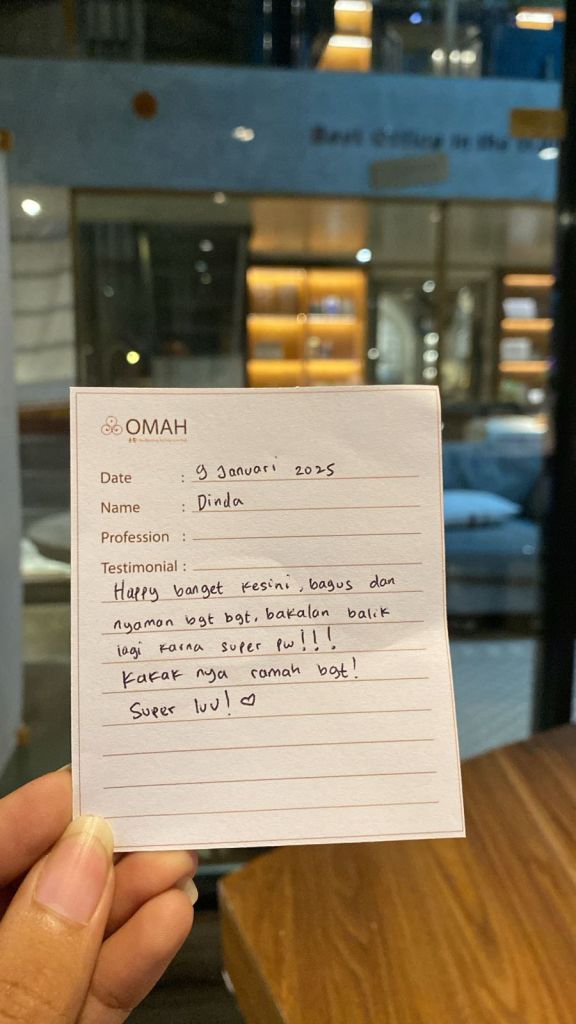 Best Office in the
OMAH
Date : 9 Januari 2025
Name : Dinda
Profession :
Testimonial :
Happy banget kesini, bagus dan
nyaman bgt bgt, bakalan balik
lagi karna super pw!!!
Kakak nya ramah bgt!
Super luv! ♡